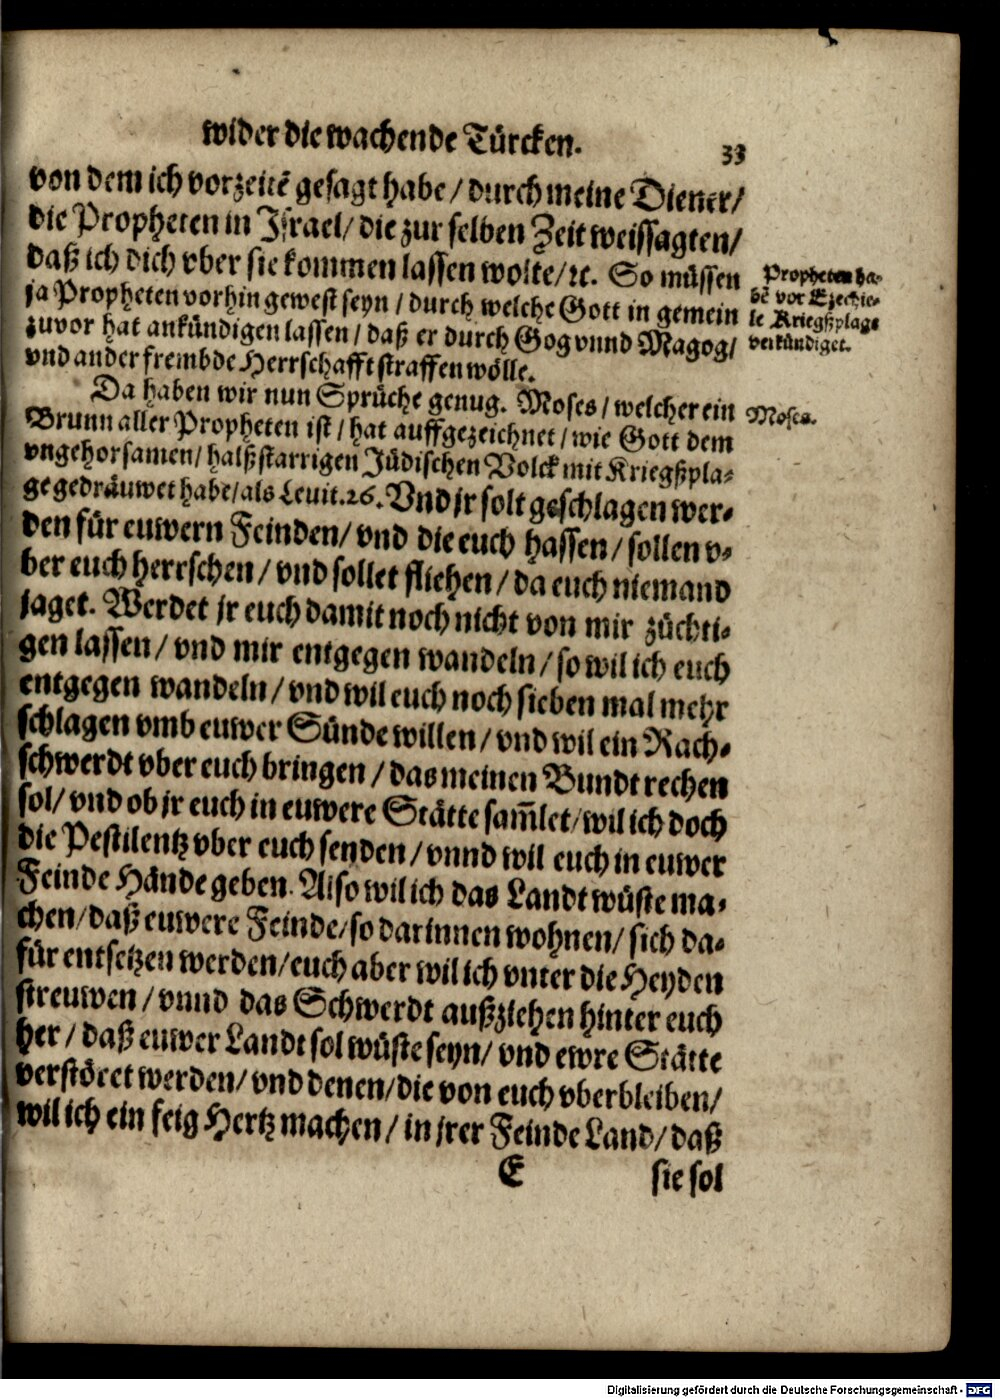 wider die wachende Türcken.
33
von dem ich vorzeitẽ gesagt habe / durch meine Diener /
die Propheten in Israel / die zur selben Zeit weissagten /
daß ich dich vber sie kommen lassen wolte / ꝛc. So müssen
ja Propheten vorhin gewest seyn / durch welche Gott in gemein
zuvor hat ankündigen lassen / daß er durch Gog vnnd Magog /
vnd ander frembde Herrschafft straffen wölle.
Propheten ha-
bẽ vor Ezechie-
le Kriegßplage
verkündiget.
Da haben wir nun Sprüche genug. Moses / welcher ein
Brunn aller Propheten ist / hat auffgezeichnet / wie Gott dem
vngehorsamen / halßstarrigen Jüdischen Volck mit Kriegßpla-
ge gedräuwet habe / als Levit. 26. Vnd jr solt geschlagen wer-
den für euwern Feinden / vnd die euch hassen / sollen v-
ber euch herrschen / vnd sollet fliehen / da euch niemand
jaget. Werdet jr euch damit noch nicht von mir züchti-
gen lassen / vnd mir entgegen wandeln / so wil ich euch
entgegen wandeln / vnd wil euch noch sieben mal mehr
schlagen vmb euwer Sünde willen / vnd wil ein Rach-
schwerdt vber euch bringen / das meinen Bundt rechen
sol / vnd ob jr euch in euwere Stätte sam̃let / wil ich doch
die Pestilentz vber euch senden / vnnd wil euch in euwer
Feinde Hände geben. Also wil ich das Landt wüste ma-
chen / daß euwere Feinde / so darinnen wohnen / sich da-
für entsetzen werden / euch aber wil ich vnter die Heyden
streuwen / vnnd das Schwerdt außziehen hinter euch
her / daß euwer Landt sol wüste seyn / vnd ewre Stätte
verstöret werden / vnd denen / die von euch vberbleiben /
wil ich ein feig Hertz machen / in jrer Feinde Land / daß
Moses.
E
sie sol
Digitalisierung gefördert durch die Deutsche Forschungsgemeinschaft - DFG